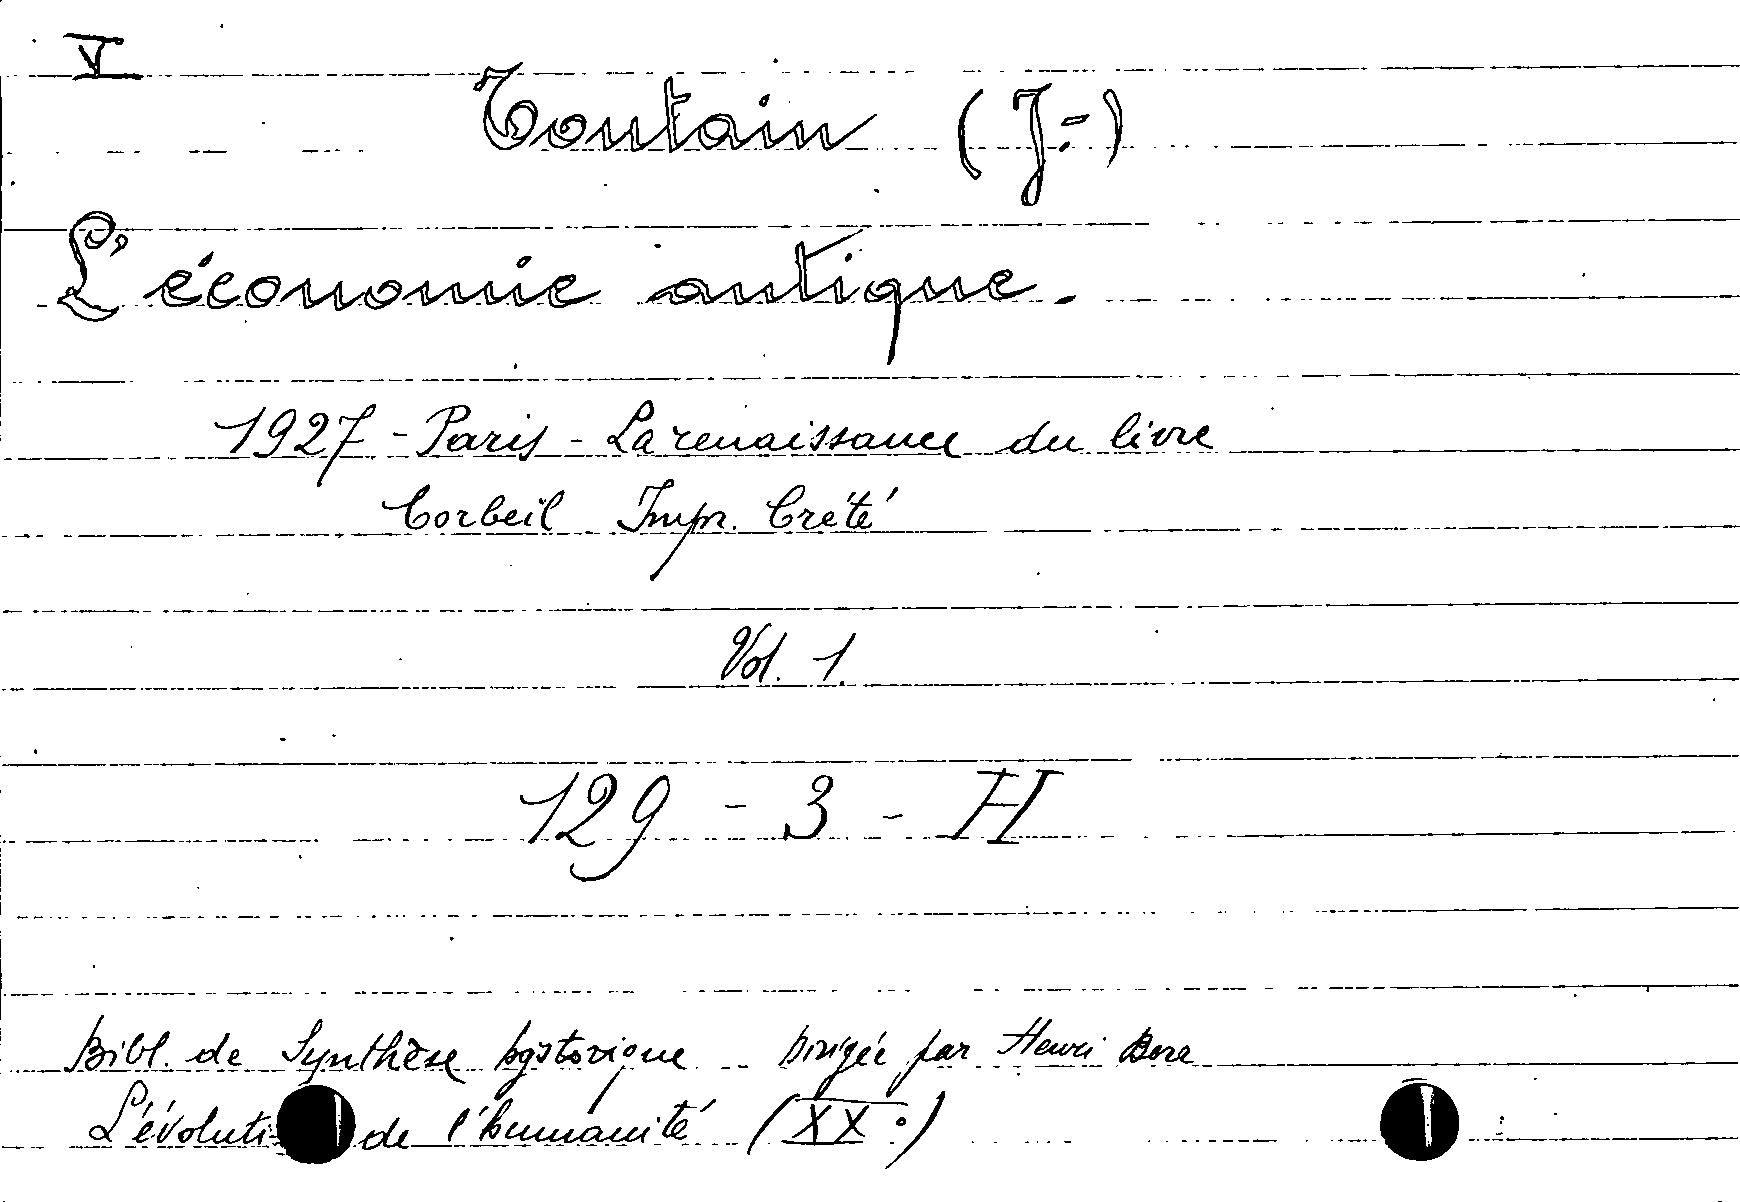 V
Toutain (J.-)
L'économie antique.
1927 - Paris - La renaissance du livre
Corbeil Impr. Crété
Vol. 1.
129 - 3 - H
Bibl. de Synthèse hystorique Dirigée par Henri Bere
L'évoluti de l'humanité (XX°)